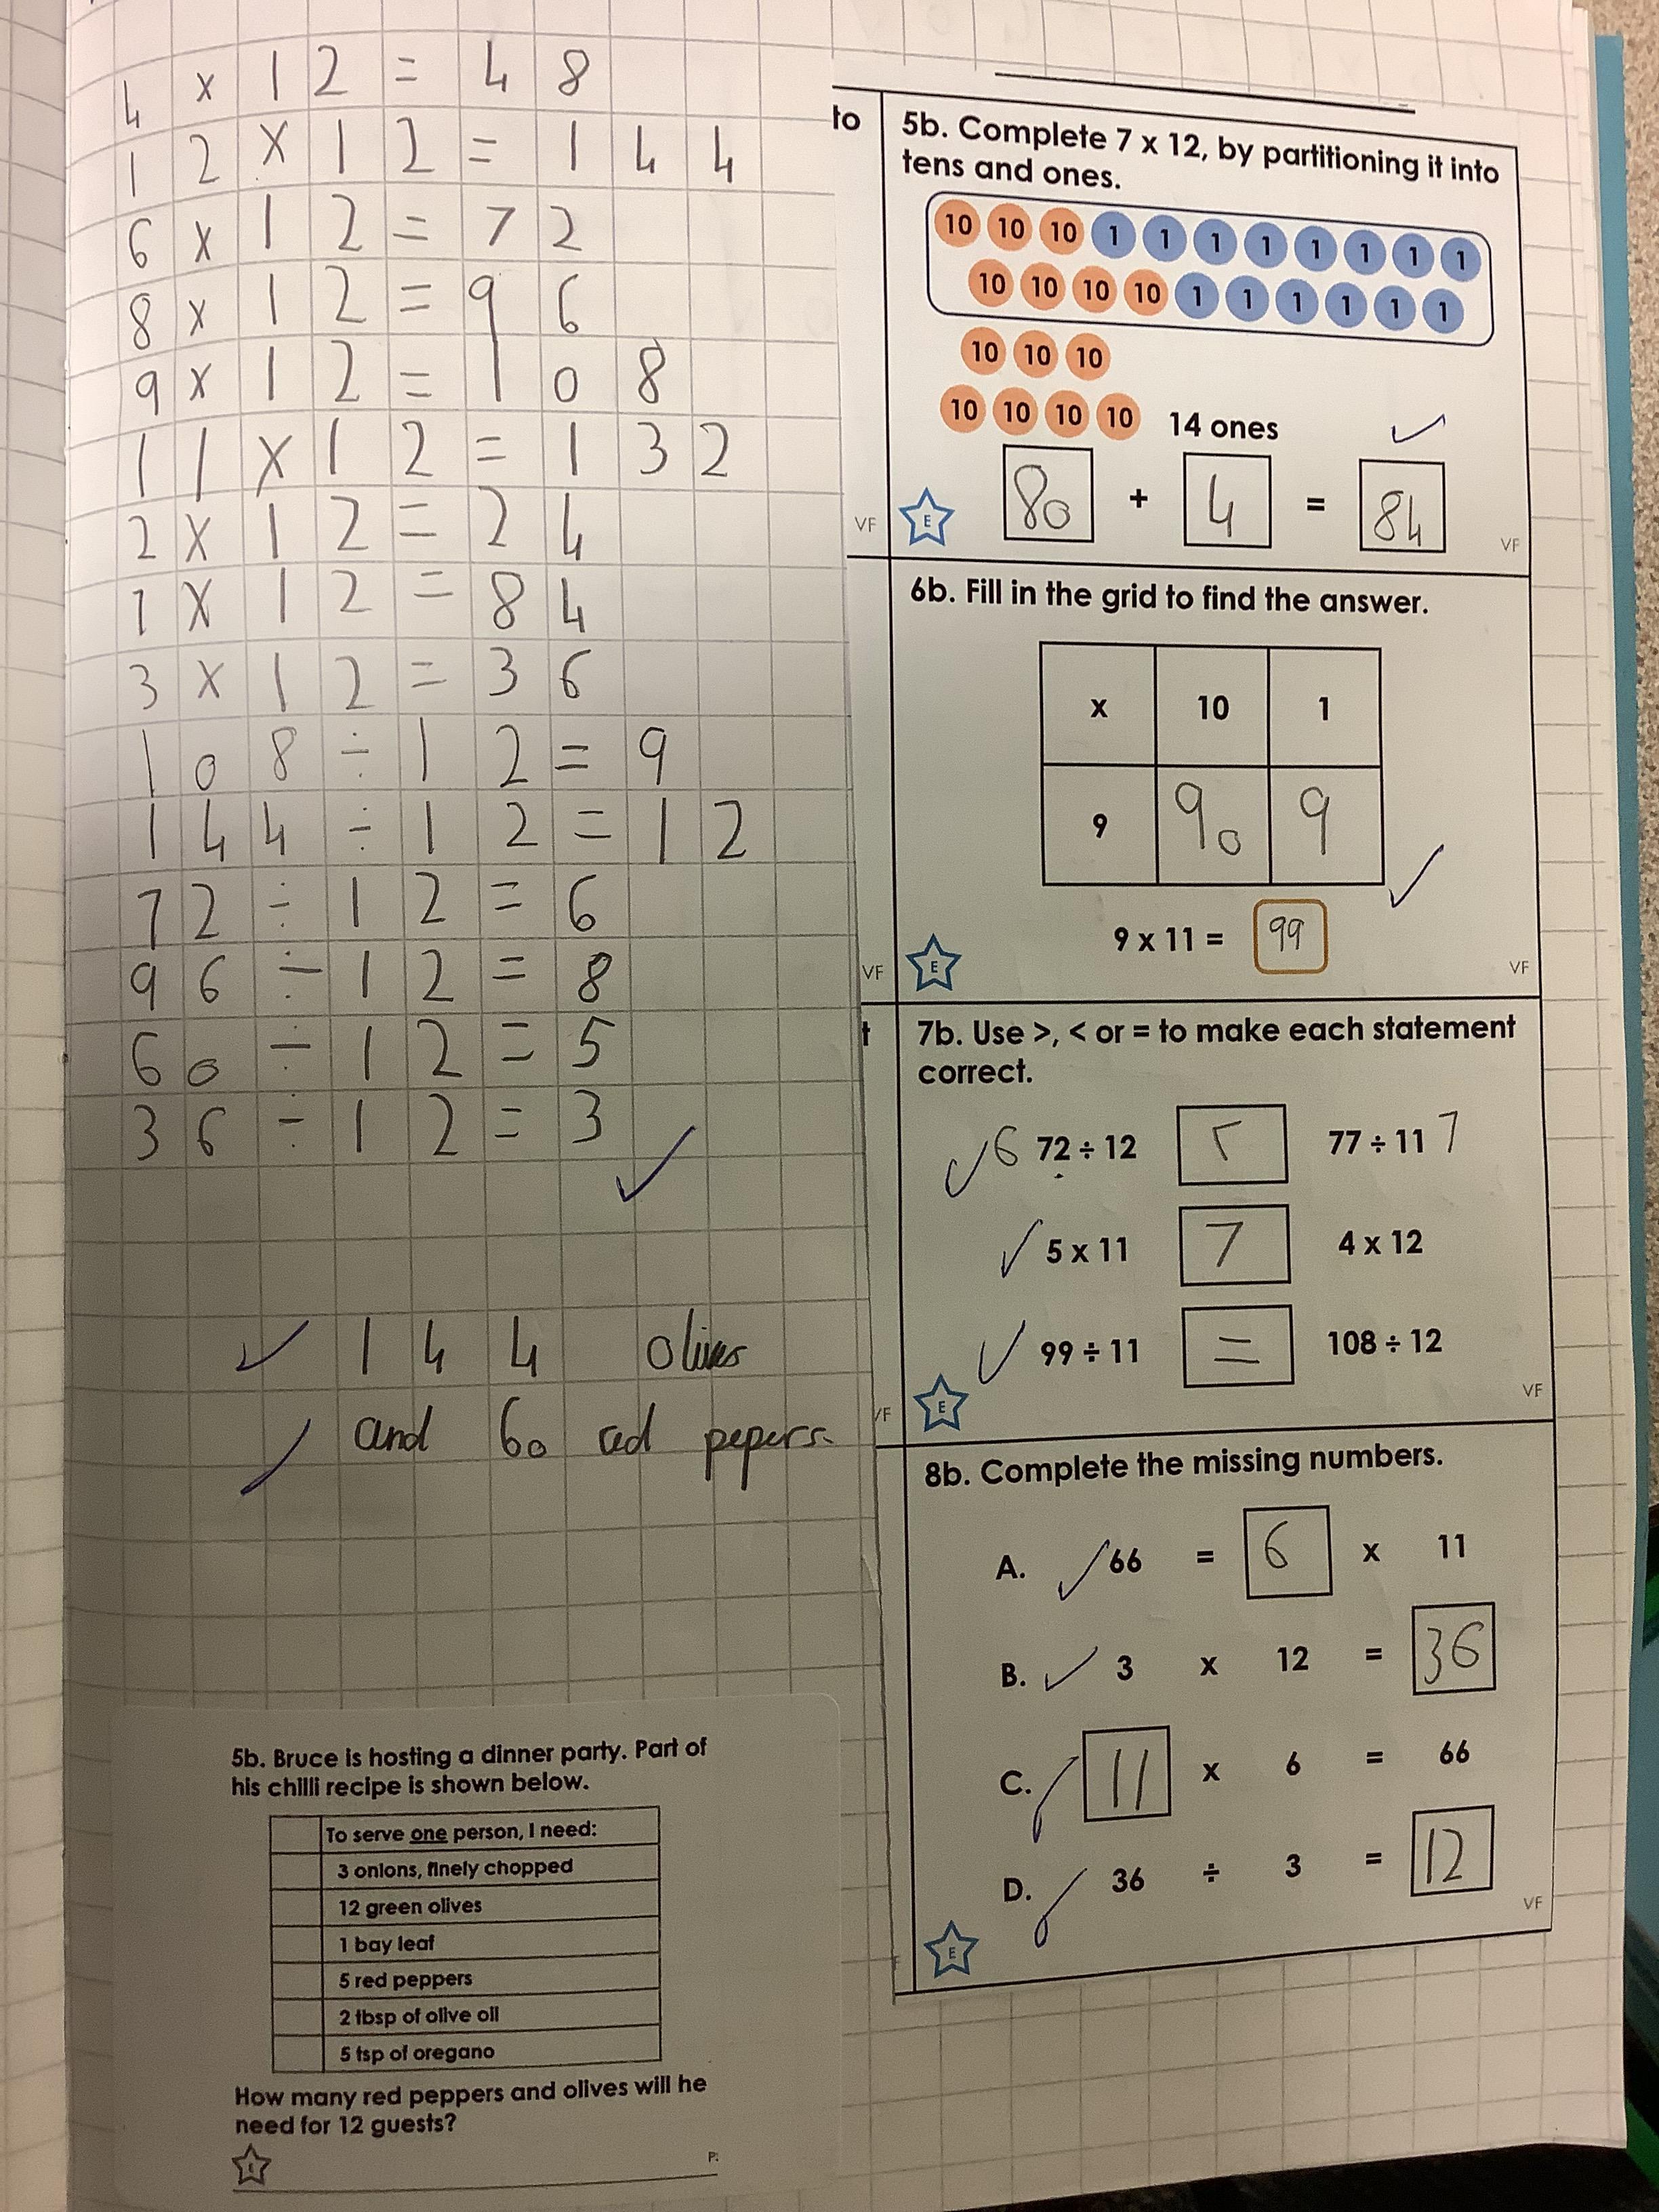 4 x 12 = 48
12 x 12 = 144
6 x 12 = 72
8 x 12 = 96
9 x 12 = 108
11 x 12 = 132
2 x 12 = 24
7 x 12 = 84
3 x 12 = 36
108 ÷ 12 = 9
144 ÷ 12 = 12
72 ÷ 12 = 6
96 ÷ 12 = 8
60 ÷ 12 = 5
36 ÷ 12 = 3
144 olives
and 60 red pepers.
5b. Bruce is hosting a dinner party. Part of
his chilli recipe is shown below.
To serve one person, I need:
3 onions, finely chopped
12 green olives
1 bay leaf
5 red peppers
2 tbsp of olive oil
5 tsp of oregano
How many red peppers and olives will he
need for 12 guests?
E
P:
to
5b. Complete 7 x 12, by partitioning it into
tens and ones.
10 10 10 1 1 1 1 1 1 1 1
10 10 10 10 1 1 1 1 1 1
10 10 10
10 10 10 10 14 ones
80 + 4 = 84
VF E VF
6b. Fill in the grid to find the answer.
x 10 1
9 90 9
9 x 11 = 99
VF E VF
t
7b. Use >, < or = to make each statement
correct.
6 72 ÷ 12 < 77 ÷ 11 7
5 x 11 > 4 x 12
99 ÷ 11 = 108 ÷ 12
VF E VF
8b. Complete the missing numbers.
A. 66 = 6 x 11
B. 3 x 12 = 36
C. 11 x 6 = 66
D. 36 ÷ 3 = 12
E VF